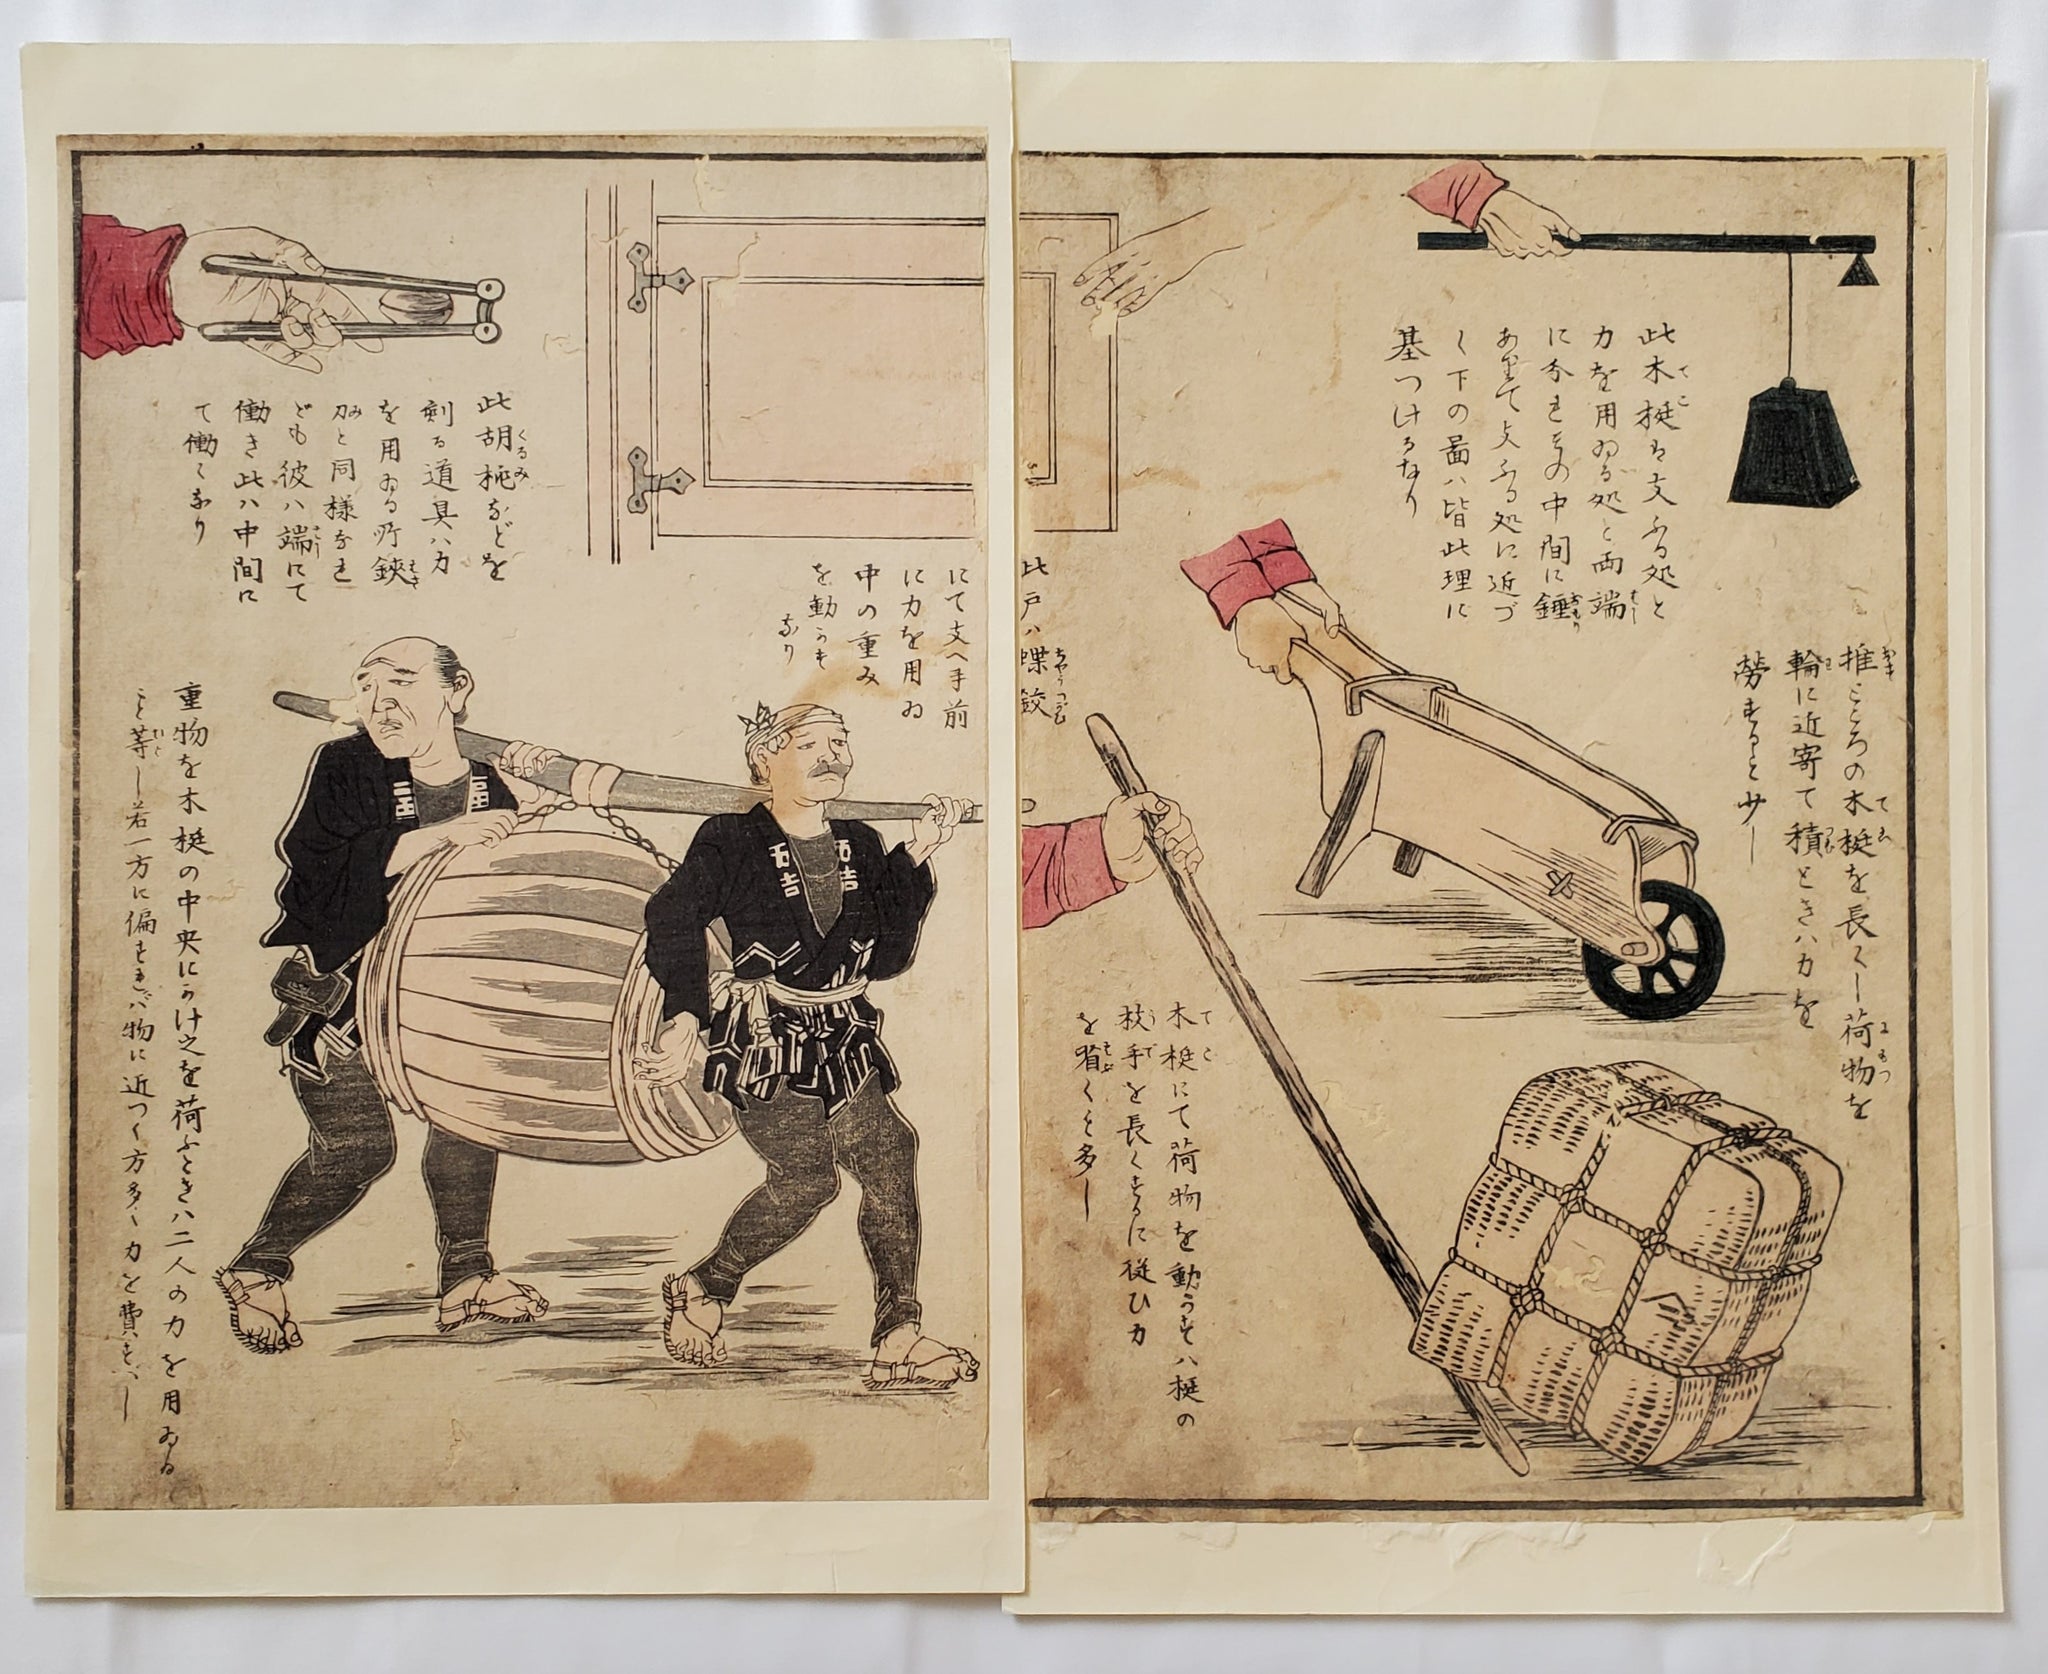 此木梃は支ふる処と
力を用ゐる処と両端
に分れその中間に錘
ありて支ふる処に近づ
く下の畾ハ皆此理に
基つけるなり
推ところの木梃を長くし荷物を
輪に近寄て積ときハ力を
労すること少し
木梃にて荷物を動かすハ梃の
枝手を長くするに従ひ力
を省くこと多し
此戸ハ蝶鉸
にて支へ手前
に力を用ゐ
中の重み
を動かす
なり
此胡桃などを
剣る道具ハ力
を用ゐる所鋏
刀と同様なれ
ども彼ハ端にて
働き此ハ中間に
て働くなり
重物を木梃の中央にかけ之を荷ふときハ二人の力を用ゐる
こと等し若一方に偏すれバ物に近つく方多く力を費すべし
五吉
五吉